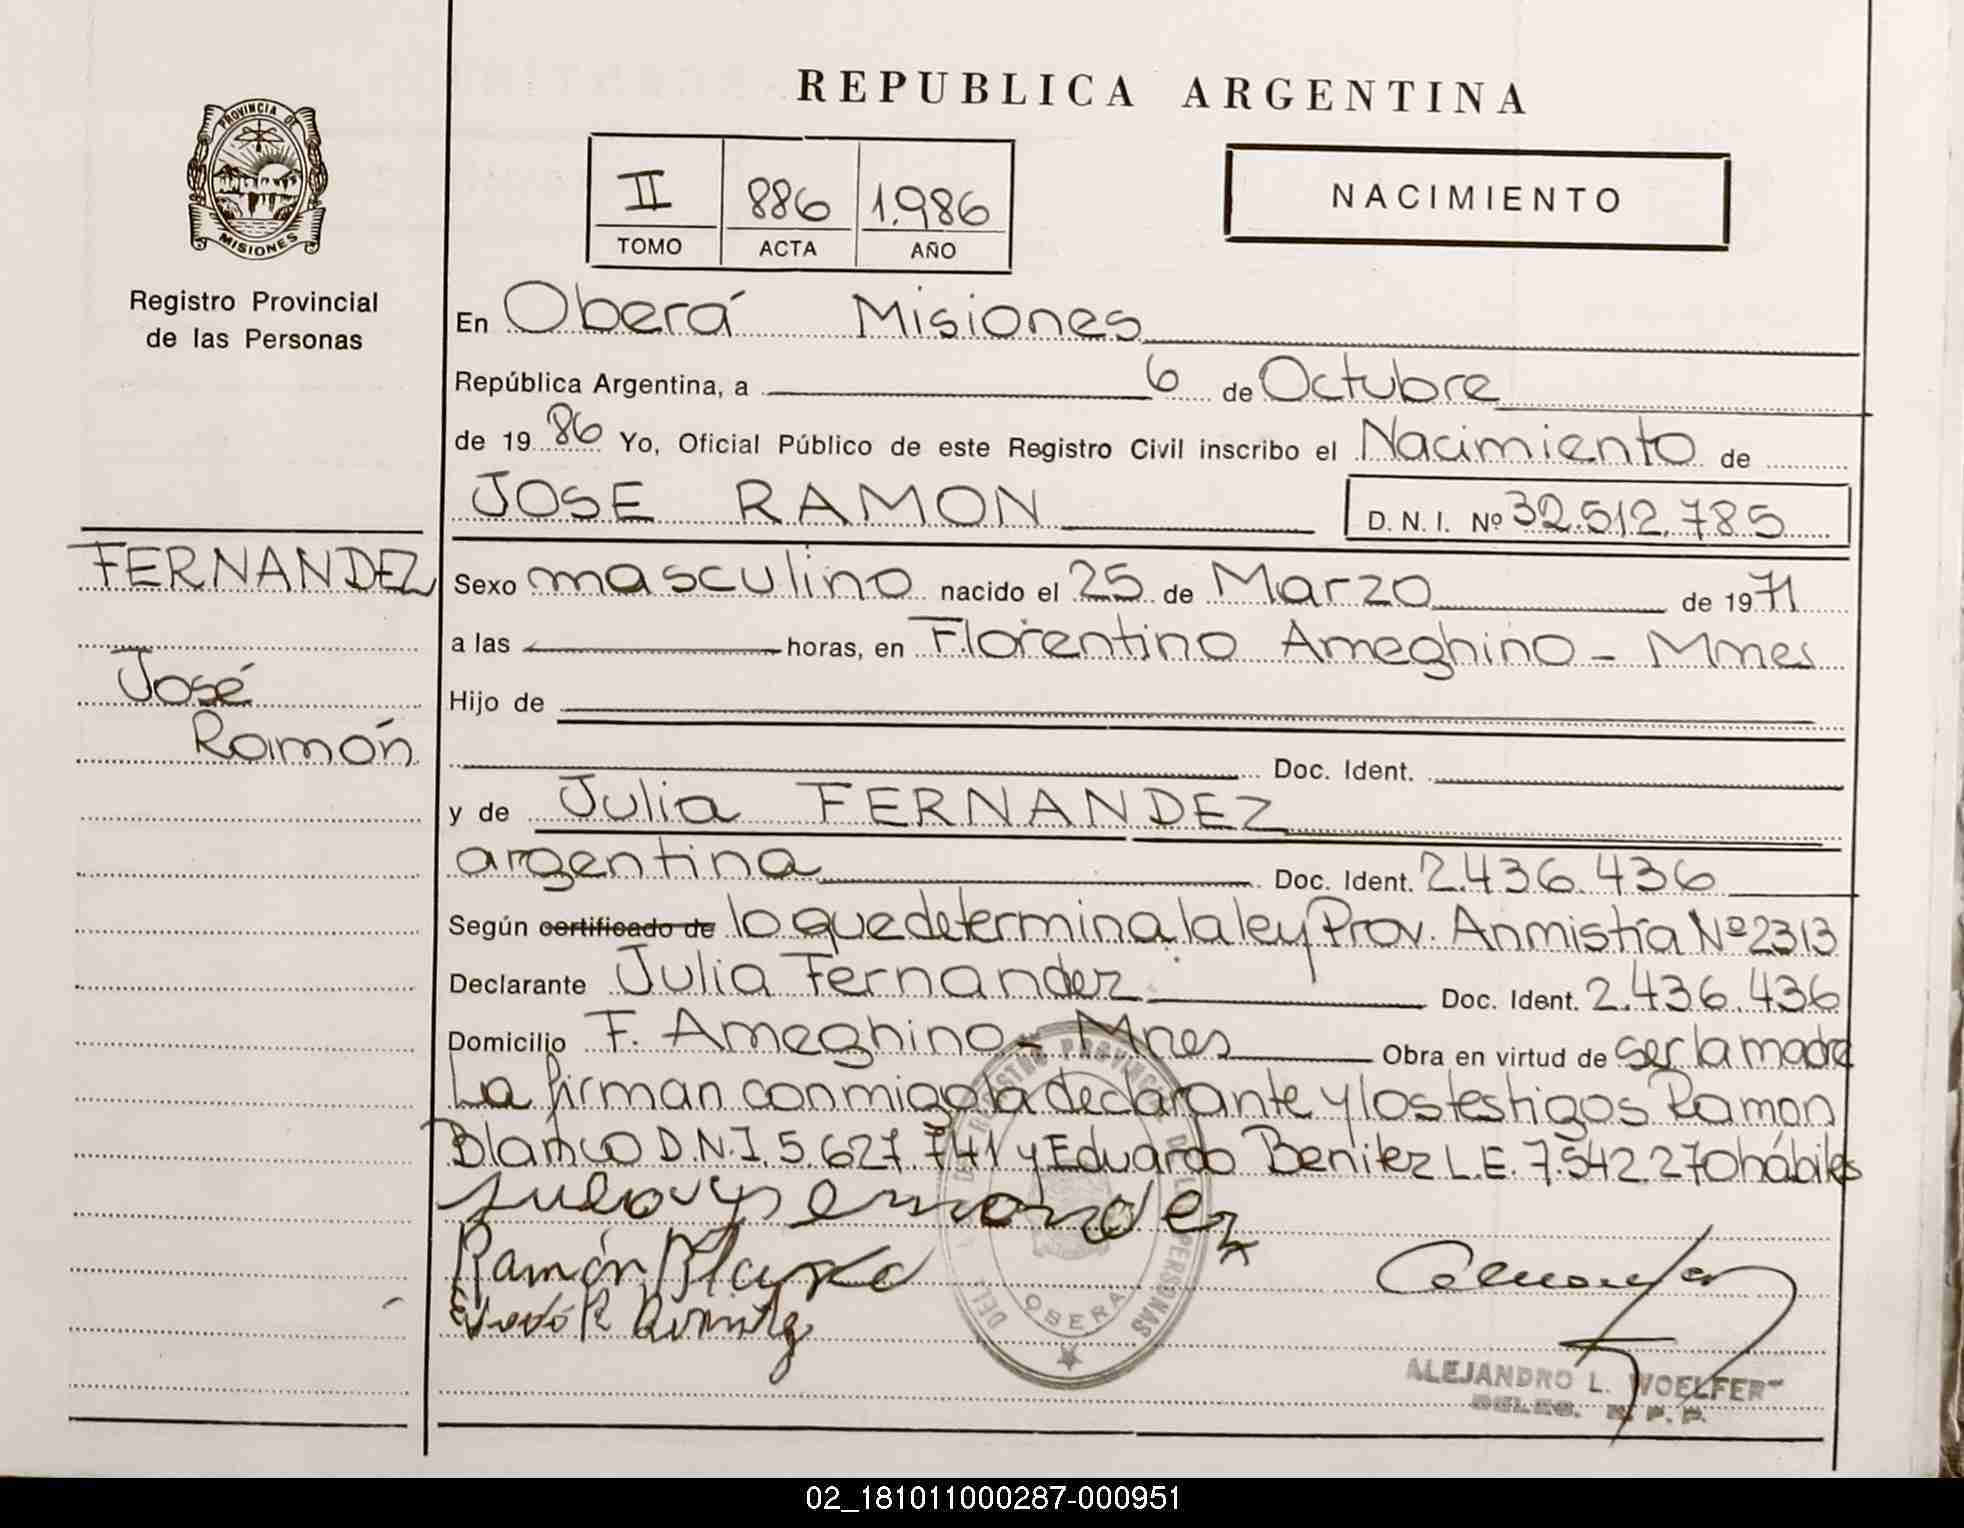 REPUBLICA ARGENTINA
PROVINCIA DE
MISIONES
Registro Provincial
de las Personas
II 886 1.986
TOMO ACTA AÑO
NACIMIENTO
En Oberá Misiones
República Argentina, a 6 de Octubre
de 1986 Yo, Oficial Público de este Registro Civil inscribo el Nacimiento de
JOSE RAMON D. N. I. Nº 32.512.785
FERNANDEZ
José
Ramón
Sexo masculino nacido el 25 de Marzo de 1971
a las horas, en Florentino Ameghino - Mnes
Hijo de
Doc. Ident.
y de Julia FERNANDEZ
argentina Doc. Ident. 2.436.436
Según certificado de lo que determina la ley Prov. Anmistía Nº 2313
Declarante Julia Fernandez Doc. Ident. 2.436.436
Domicilio F. Ameghino - Mnes Obra en virtud de ser la madre
La firman conmigo la declarante y los testigos Ramon
Blanco D.N.I. 5.627.741 y Eduardo Benitez L.E. 7.542.270 hábiles
Ramón
DEL REGISTRO PROVINCIAL DE LAS PERSONAS
OBERA
ALEJANDRO L. WOELFER
DELEG. R. P. P.
02_181011000287-000951